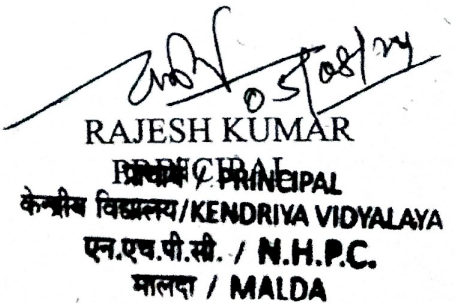 05/08/24
RAJESH KUMAR
PRINCIPAL
प्राचार्य / PRINCIPAL
केन्द्रीय विद्यालय/KENDRIYA VIDYALAYA
एन.एच.पी.सी. / N.H.P.C.
मालदा / MALDA